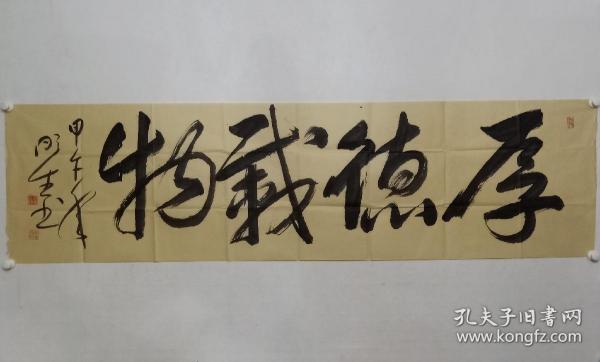 厚德载物
甲午年
明生书
孔夫子旧书网
www.kongfz.com